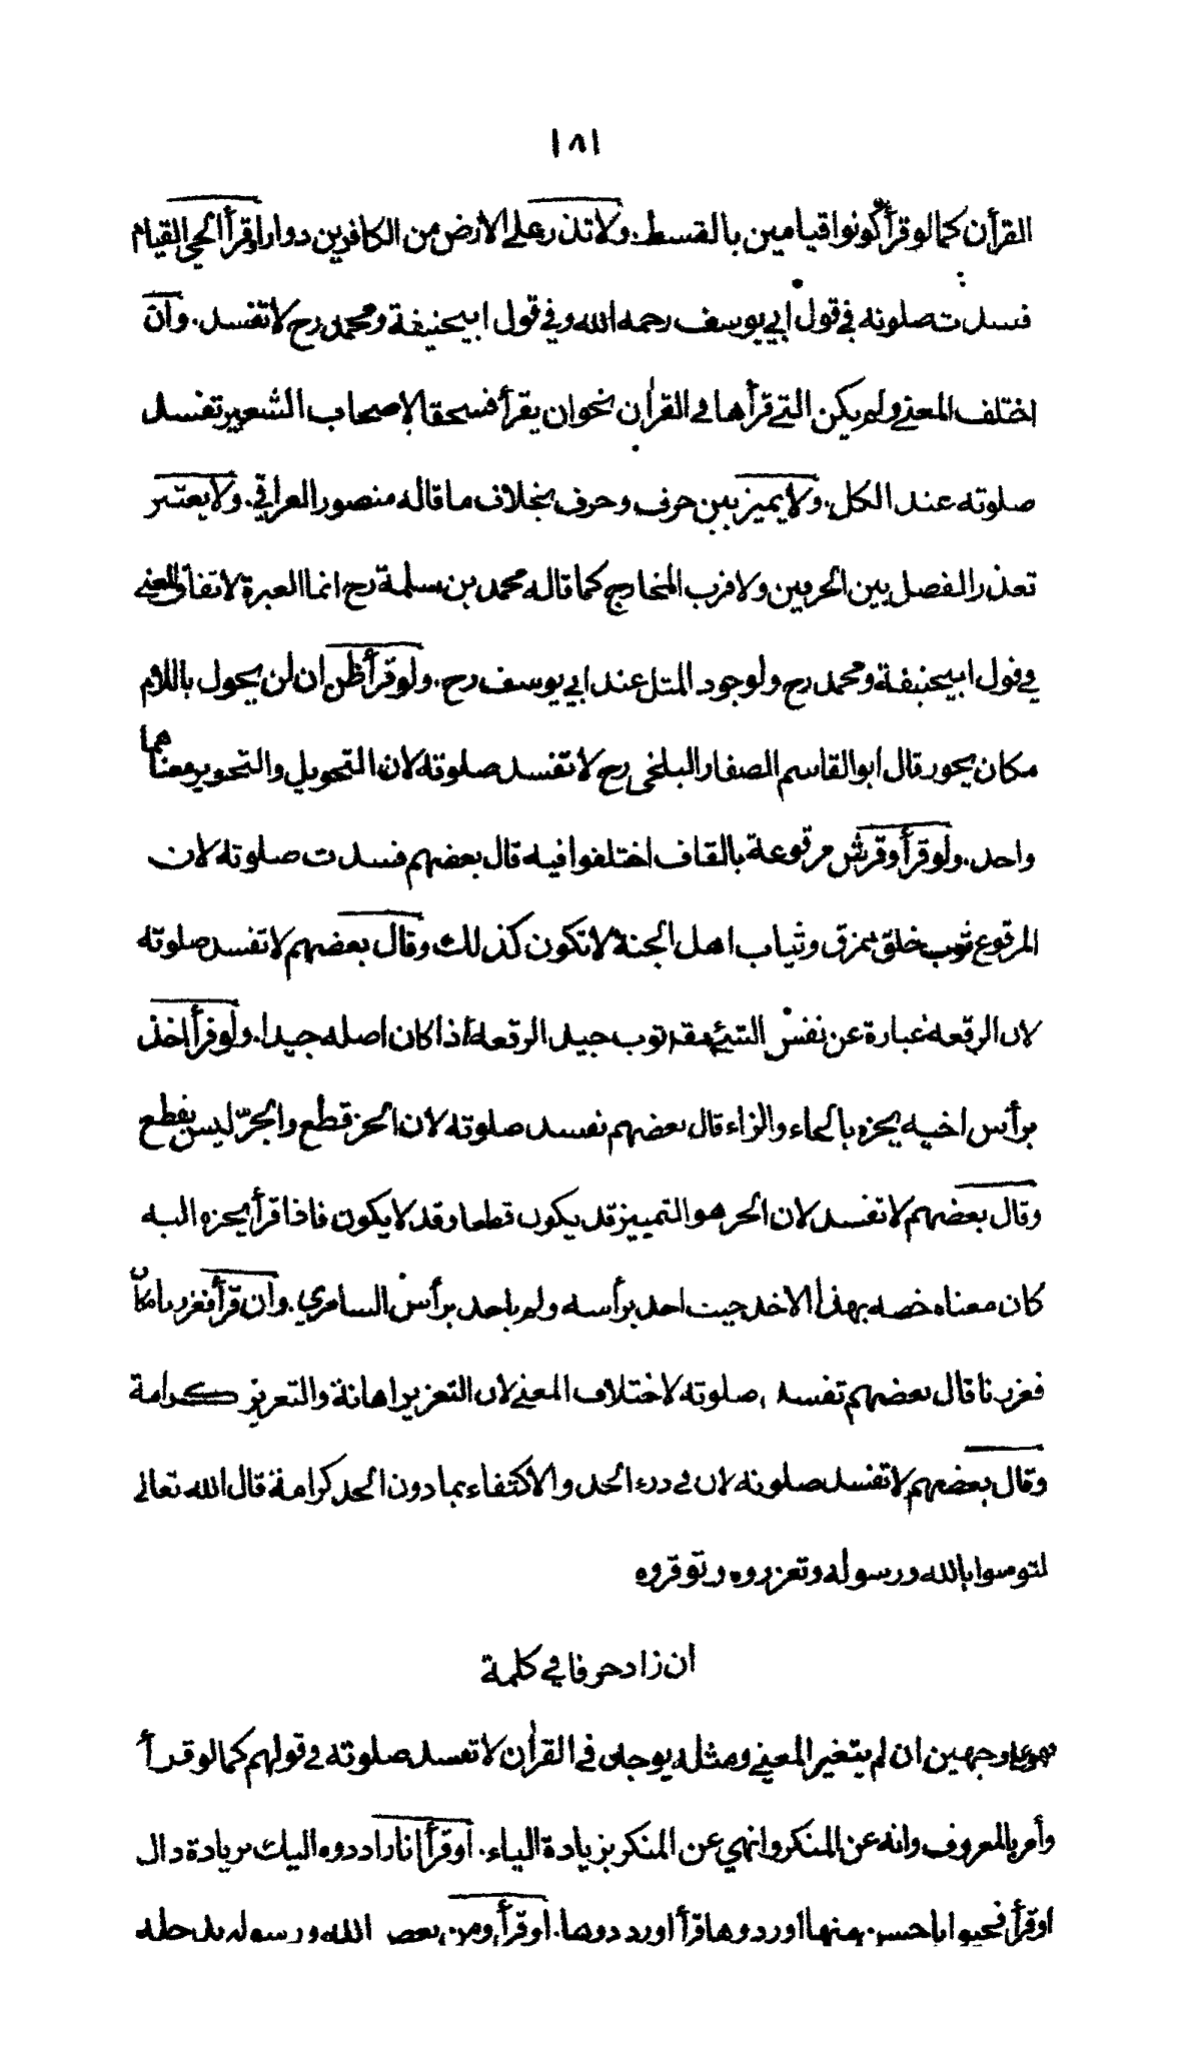 ١٨١
القرأن كما لو قرأ كونوا قيامين بالقسط. ولا تذر على الارض من الكافرين دوارا وقرأ الحي القيام
فسدت صلوته في قول ابي يوسف رحمه الله وفي قول ابيحنيفة ومحمد رح لا تفسد. وان
اختلف المعنى ولم يكن التي قرأها في القرأن نحو ان يقرأ فسحقا لاصحاب الشعير تفسد
صلوته عند الكل. ولا يميز بين حرف وحرف بخلاف ما قاله منصور العراقي. ولا يعتبر
تعذر الفصل بين الحرفين ولا قرب المخارج كما قاله محمد بن سلمة رح انما العبرة لاتفاق المعنى
في قول ابيحنيفة ومحمد رح ولوجود المثل عند ابي يوسف رح. ولو قرأ ظن ان لن يحول باللام
مكان يحور قال ابو القاسم الصفار البلخي رح لا تفسد صلوته لان التحويل والتحوير معناهما
واحد. ولو قرأ وقرش مرقوعة بالقاف اختلفوا فيه قال بعضهم فسدت صلوته لان
المرقوع ثوب خلق يمزق وثياب اهل الجنة لا تكون كذلك وقال بعضهم لا تفسد صلوته
لان الرقعة عبارة عن نفس الشئ يقال ثوب جيد الرقعة اذا كان اصله جيدا. ولو قرأ اخذ
برأس اخيه يحزه بالحاء والزاء قال بعضهم تفسد صلوته لان الحز قطع والجرّ ليس بقطع
وقال بعضهم لا تفسد لان الحز هو التمييز قد يكون قطعا وقد لا يكون فاذا قرأ يحزه اليه
كان معناه خصه بهذا الاخذ حيث اخذ برأسه ولم ياخذ برأس السامري. وان قرأ فعزرنا مكان
فعززنا قال بعضهم تفسد صلوته لاختلاف المعنى لان التعزير اهانة والتعزيز كرامة
وقال بعضهم لا تفسد صلوته لان في درء الحد والاكتفاء بما دون الحد كرامة قال الله تعالى
لتومنوا بالله ورسوله وتعزروه وتوقروه
ان زاد حرفا في كلمة
فهو على وجهين ان لم يتغير المعنى ومثله يوجد في القرأن لا تفسد صلوته في قولهم كما لو قرأ
وأمر بالمعروف وانه عن المنكر وانهي عن المنكر بزيادة الياء. او قرأ انا راددوه اليك بزيادة دال
او قرأ فحيوا باحسن منها اوردوها قرأ اورددوها. او قرأ ومن يعص الله ورسوله يدخله